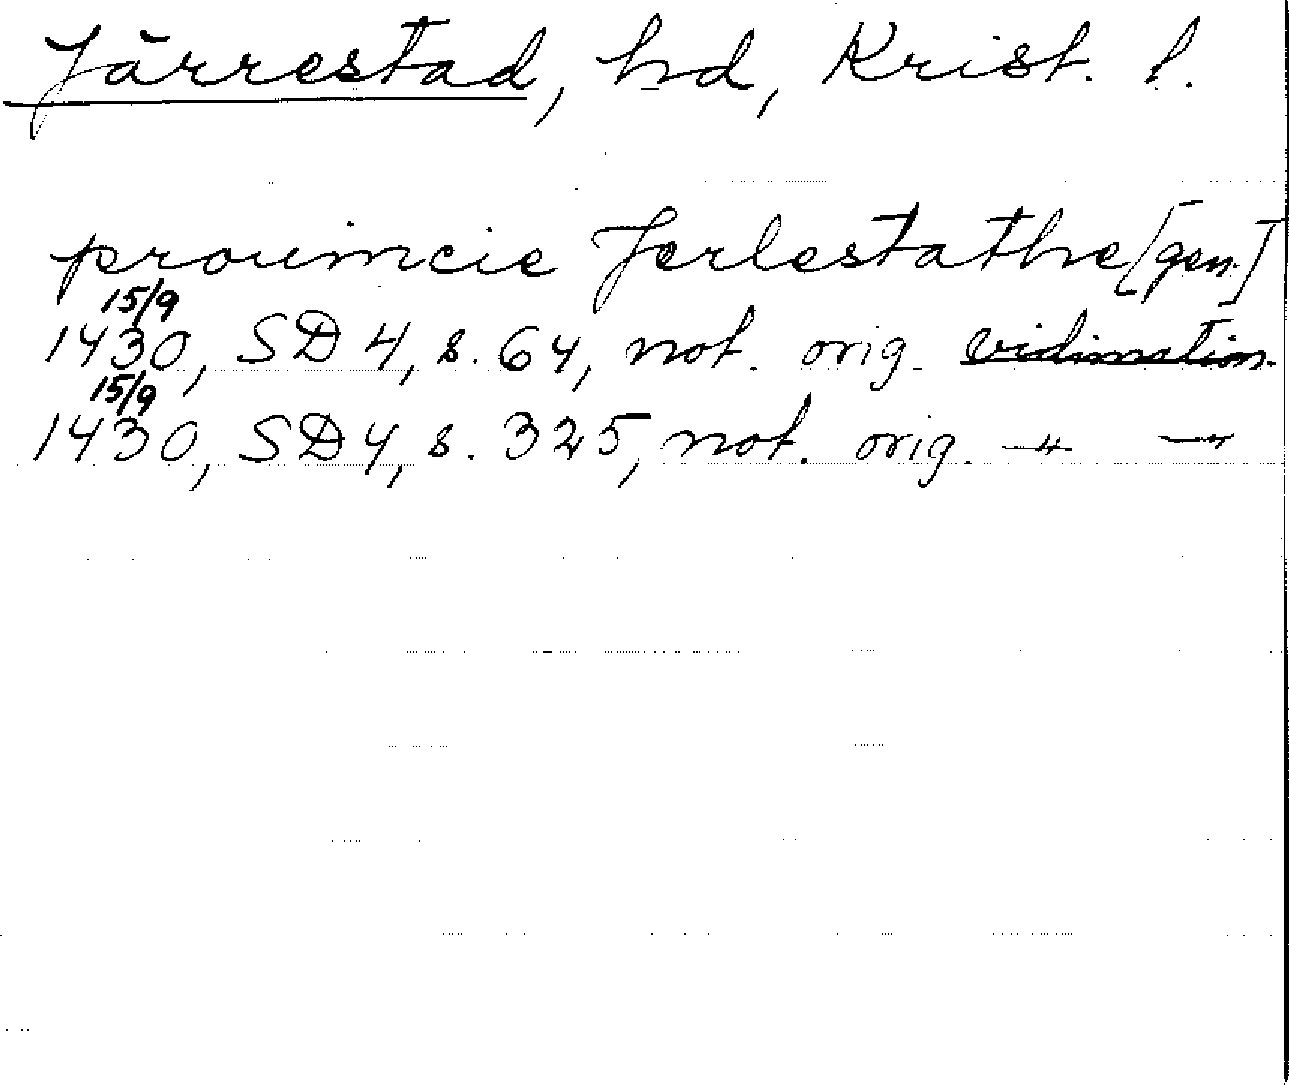 Järrestad, hd, Krist. l.
prouincie Jerlestathe [gen.]
15/9
1430, SD 4, s. 64, not. orig. vidimation.
15/9
1430, SD 4, s. 325, not. orig. —"— —"